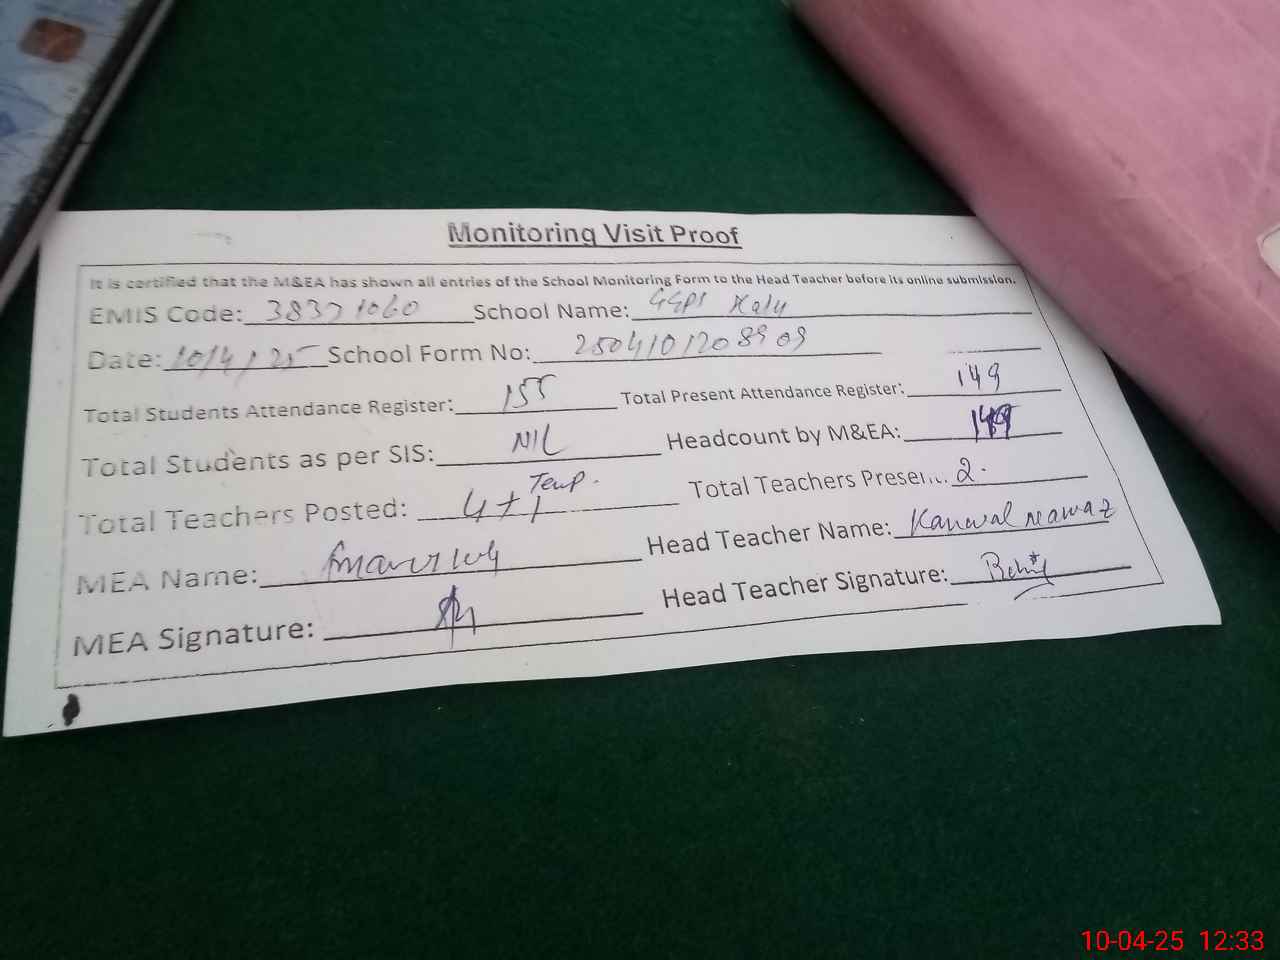 Monitoring Visit Proof
It is certified that the M&EA has shown all entries of the School Monitoring Form to the Head Teacher before its online submission.
EMIS Code: 38371060 School Name: GGPS Kalu
Date: 10/4/25 School Form No: 2504101208909
Total Students Attendance Register: 155 Total Present Attendance Register: 149
Total Students as per SIS: NIL Headcount by M&EA: 149
Total Teachers Posted: 4+1 Temp. Total Teachers Presen... 2.
MEA Name: Head Teacher Name: Kanwal nawaz
MEA Signature: Head Teacher Signature:
10-04-25 12:33